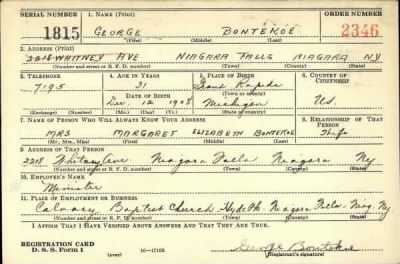 SERIAL NUMBER 1. NAME (Print) ORDER NUMBER
1815 GEORGE BONTEKOE 2346
(First) (Middle) (Last)
2. ADDRESS (Print)
2218 WHITNEY AVE NIAGARA FALLS NIAGARA NY
(Number and street or R. F. D. number) (Town) (County) (State)
3. TELEPHONE 4. AGE IN YEARS 5. PLACE OF BIRTH 6. COUNTRY OF CITIZENSHIP
7195 31 Grand Rapids
(Town or county)
DATE OF BIRTH
Dec. 12 1908 Michigan US.
(Exchange) (Number) (Mo.) (Day) (Yr.) (State or country)
7. NAME OF PERSON WHO WILL ALWAYS KNOW YOUR ADDRESS 8. RELATIONSHIP OF THAT PERSON
MRS MARGARET ELIZABETH BONTEKOE Wife
(Mr., Mrs., Miss) (First) (Middle) (Last)
9. ADDRESS OF THAT PERSON
2218 Whitney Ave. Niagara Falls Niagara Ny
(Number and street or R. F. D. number) (Town) (County) (State)
10. EMPLOYER'S NAME
Minister
11. PLACE OF EMPLOYMENT OR BUSINESS
Calvary Baptist Church Hyde Pk Niagara Falls Niag. Ny
(Number and street or R. F. D. number) (Town) (County) (State)
I AFFIRM THAT I HAVE VERIFIED ABOVE ANSWERS AND THAT THEY ARE TRUE.
REGISTRATION CARD
D. S. S. Form 1 (over) 16—17105 George Bontekoe
(Registrant's signature)